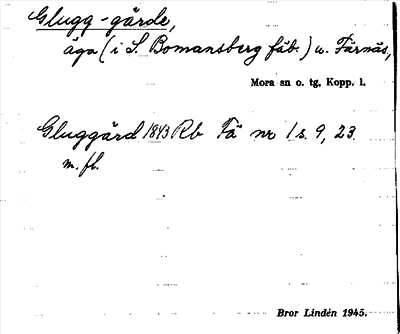 Glugg-gärde,
äga (i S. Bomansberg fäb.) u. Färnäs,
Mora sn o. tg, Kopp. l.
Gluggärd 1843 Rb Fä nr 1 s. 9, 23
m. fl.
Bror Lindén 1945.